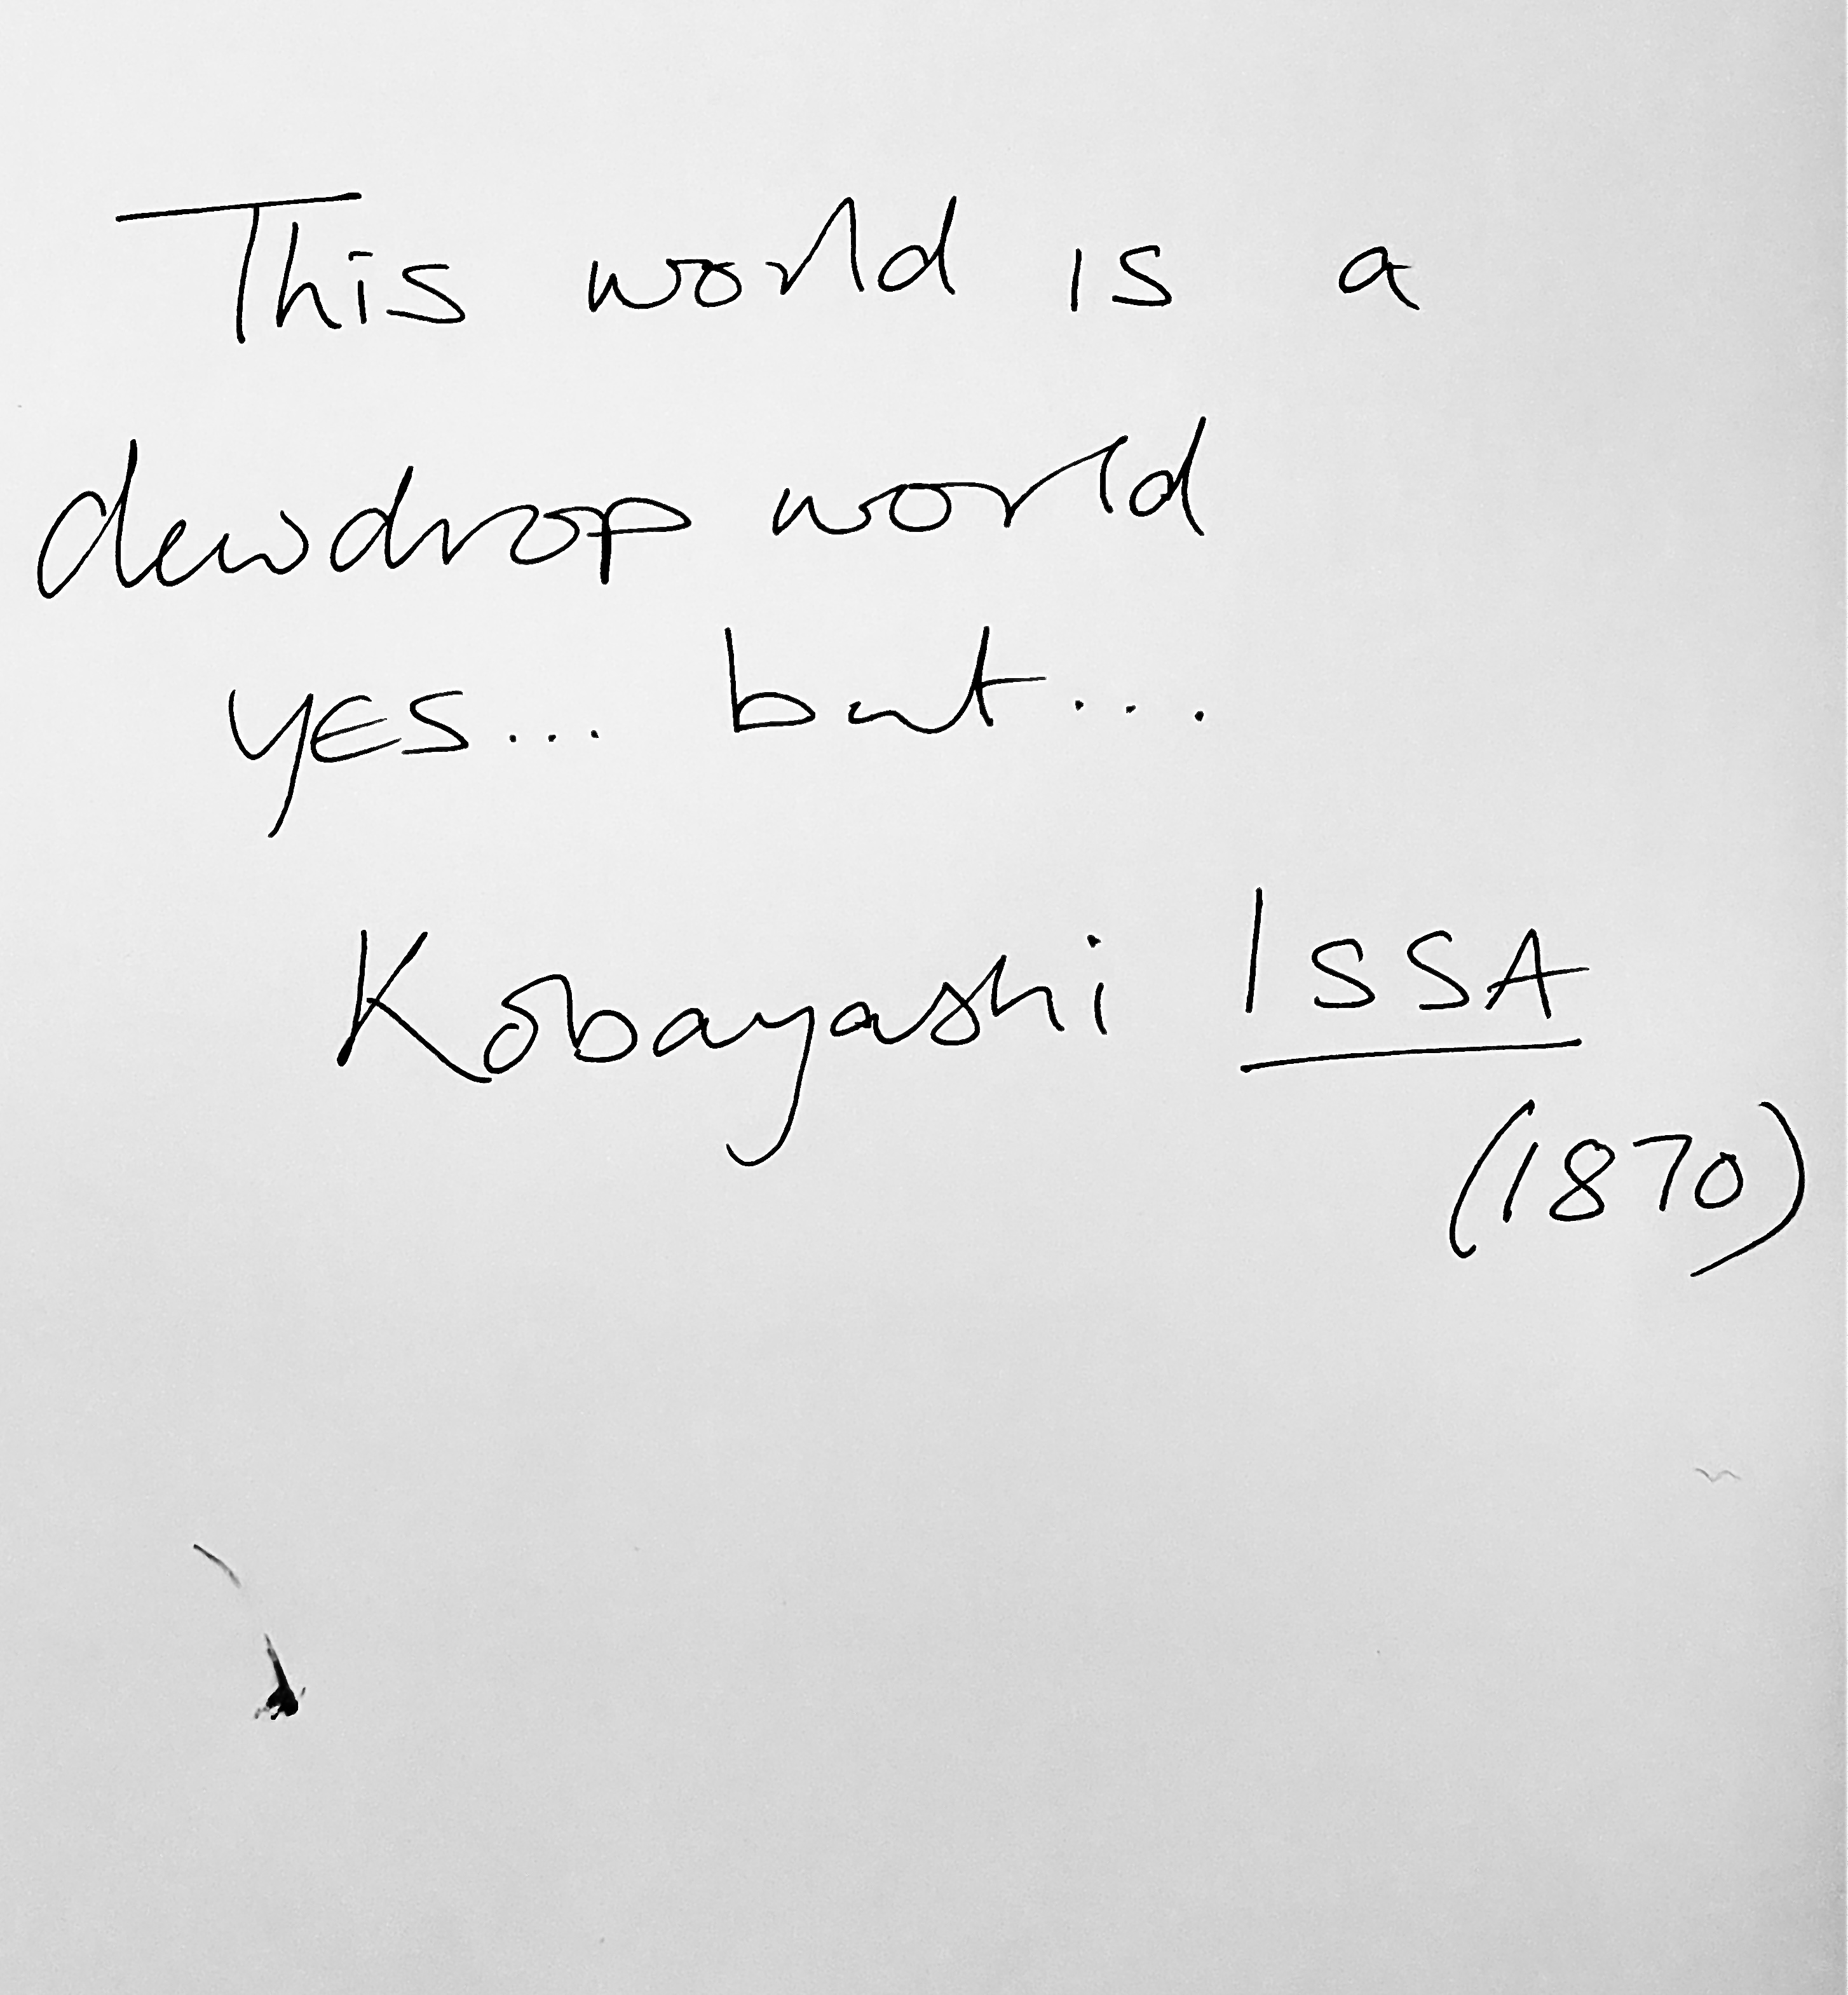 This world is a
dewdrop world
yES... but...
Kobayashi ISSA
(1870)